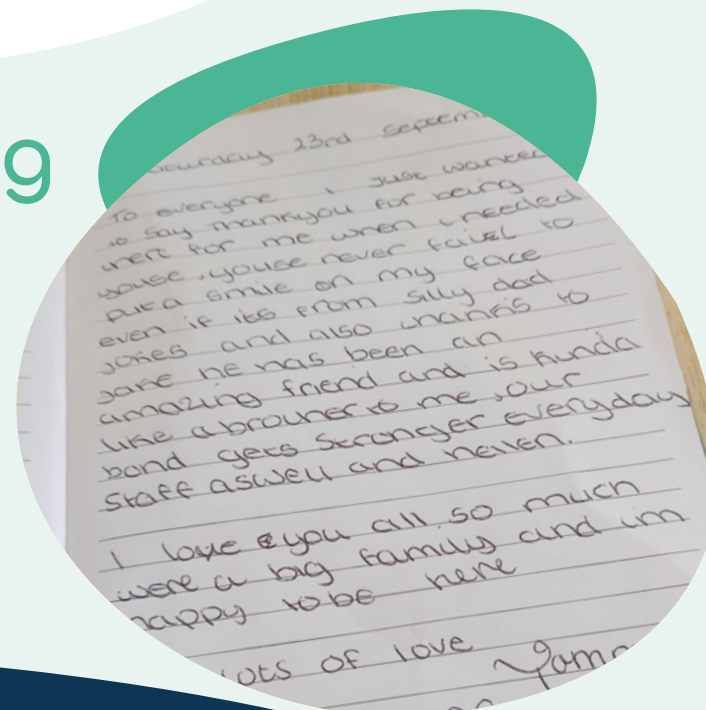 9
23rd
To everyone i just wanted
to say thankyou for being
there for me when i needed
youse, youse never failet to
put a smile on my face
even if its from silly dad
jokes and also thanks to
jake he has been an
amazing friend and is kunda
like a brouher to me, our
bond gets stronger everyday
staff aswell and
I love you all so much
were a big family and im
happy to be here
lots of love